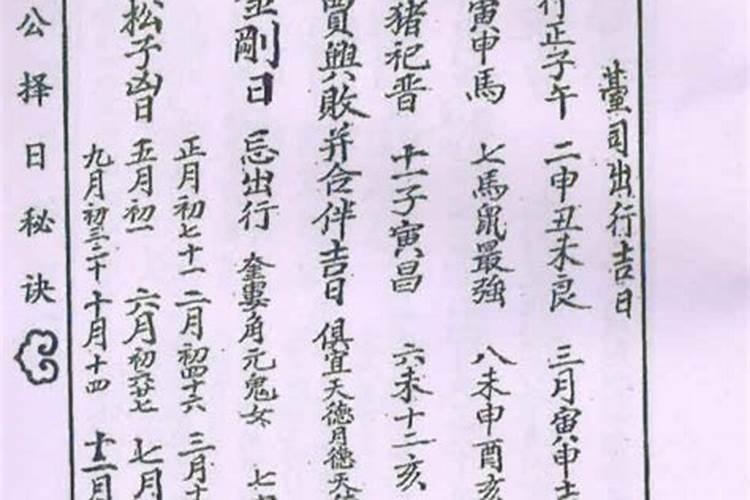 臺司出行吉日
行正子午 二申丑未良 三月寅申
寅申馬 七馬鼠最強 八未申酉亥
猪祀晋 十一子寅昌 六未十二亥
買興敗并合伴吉日 俱宜天德月德天
金剛日 忌出行 奎婁角亢鬼女 七
正月初七十一 二月初四十六 三月十
松子凶日 五月初一 六月初 廿七 七月
九月初三二十 十月十四 十一月
公择日秘诀